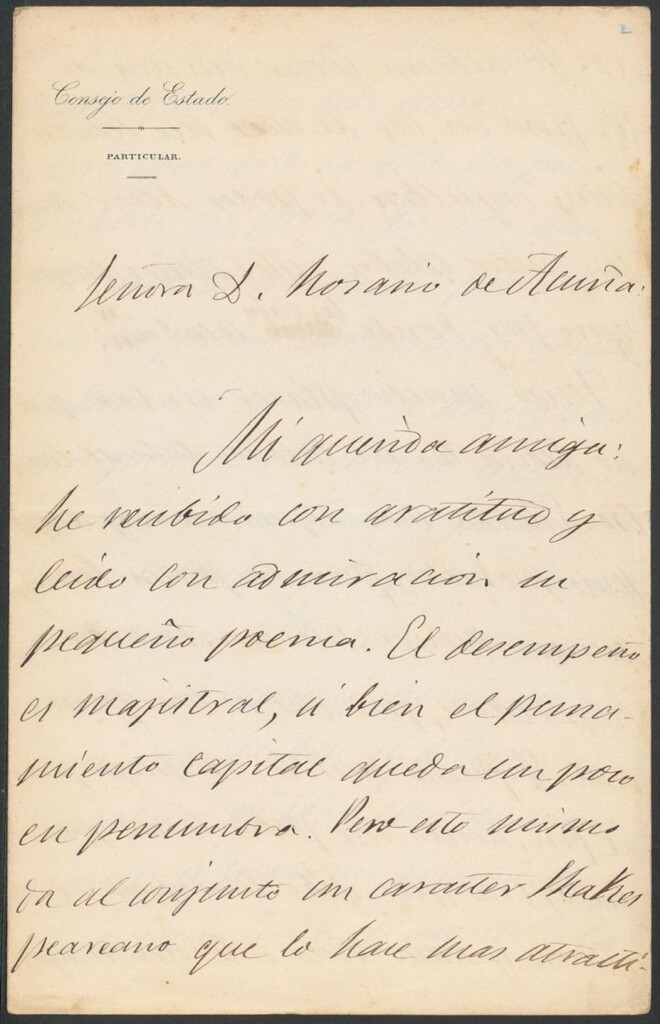 2
Consejo de Estado.
PARTICULAR.
Señora D. Rosario de Acuña:
Mi querida amiga:
he recibido con gratitud y
leido con admiración su
pequeño poema. El desempeño
es majistral, si bien el pensa-
miento capital queda un poco
en penumbra. Pero esto mismo
da al conjunto un caracter Shakes
peareano que lo hace mas atracti-